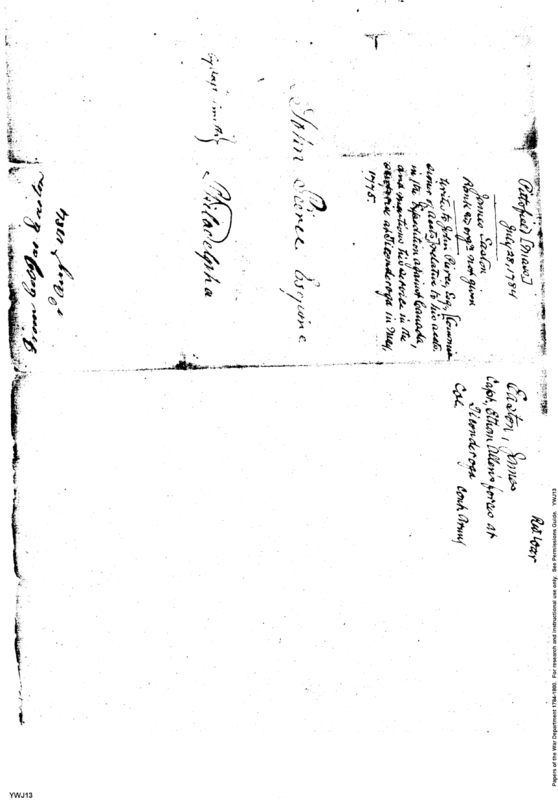 Pittsfield [Mass]
July 28, 1784
James Easton
Rank and orgn. not given
Writes to John Pierce, Esq. [Commis-
sioner of accts] relative to his accts.
in the Expedition against Canada,
and mentions his service in the
at Ticonderoga in May,
1775.
John Pierce Esquire
Philadelphia
Rev War
Easton, James
Capt. Ethan Allen's forces at
Ticonderoga
Col Cont Army
Papers of the War Department 1784-1800. For research and instructional use only. See Permissions Guide. YWJ13
YWJ13